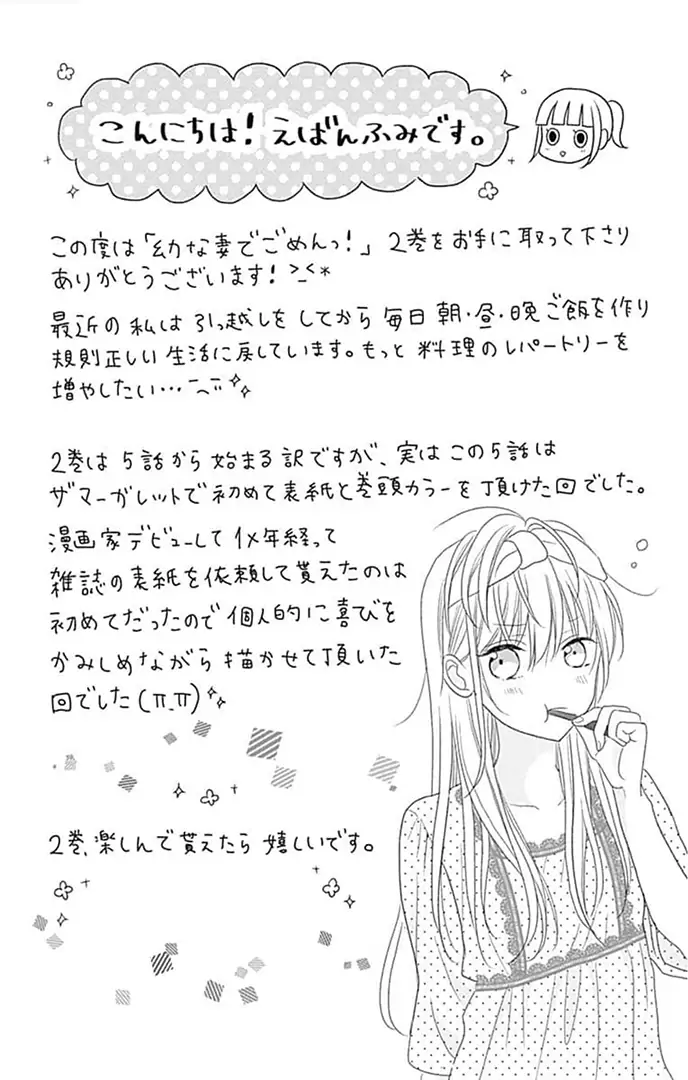 こんにちは！えばんふみです。
この度は「幼な妻でごめんっ！」2巻をお手に取って下さり
ありがとうございます！>_<*
最近の私は引っ越しをしてから毎日朝・昼・晩ご飯を作り
規則正しい生活に戻しています。もっと料理のレパートリーを
増やしたい…
2巻は5話から始まる訳ですが、実はこの5話は
ザマーガレットで初めて表紙と巻頭カラーを頂けた回でした。
漫画家デビューして1×年経って
雑誌の表紙を依頼して貰えたのは
初めてだったので個人的に喜びを
かみしめながら描かせて頂いた
回でした(π_π)
2巻、楽しんで貰えたら嬉しいです。